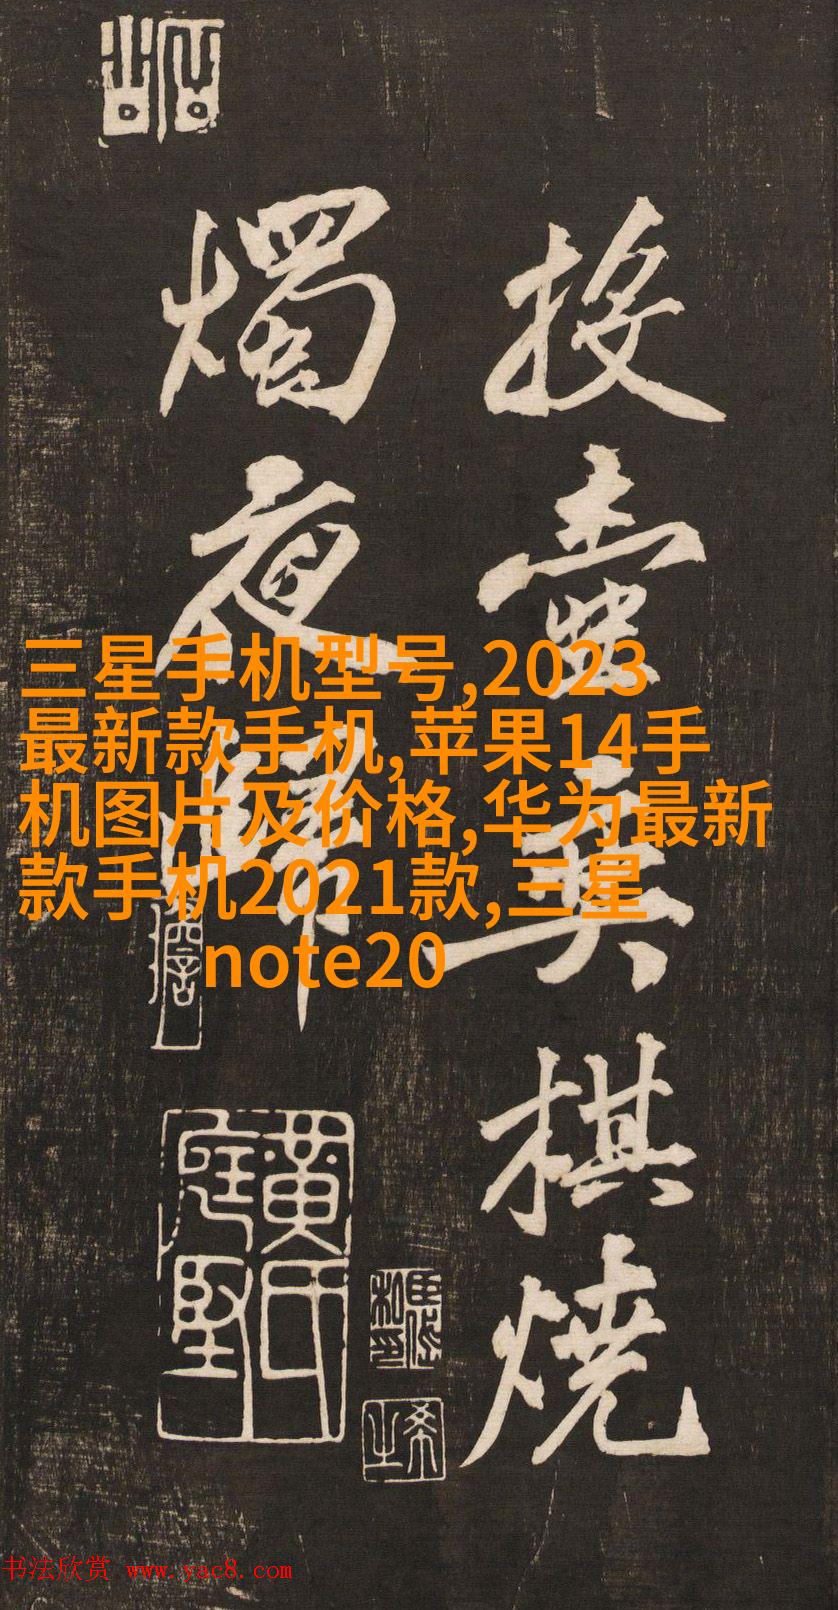 投壺奕棋燒
燭夜歸
三星手机型号,2023
最新款手机,苹果14手
机图片及价格,华为最新
款手机2021款,三星
note20
黃氏
庭堅
书法欣赏 www.yac8.com